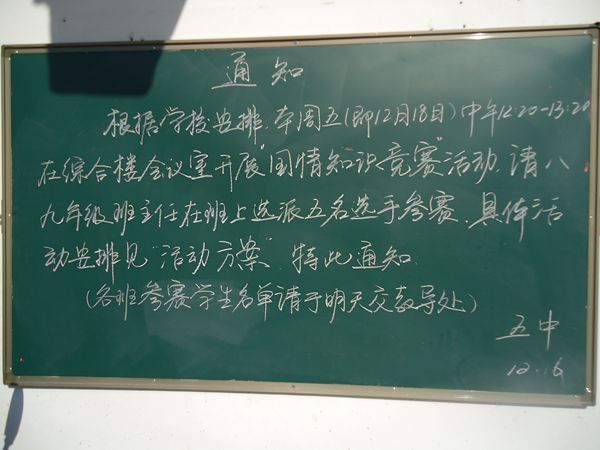 通知
根据学校安排,本周五(即12月18日)中午12:20-13:20
在综合楼会议室开展"国情知识竞赛"活动,请八
九年级班主任在班上选派五名选手参赛,具体活
动安排见"活动方案",特此通知.
(各班参赛学生名单请于明天交教导处)
五中
12.16